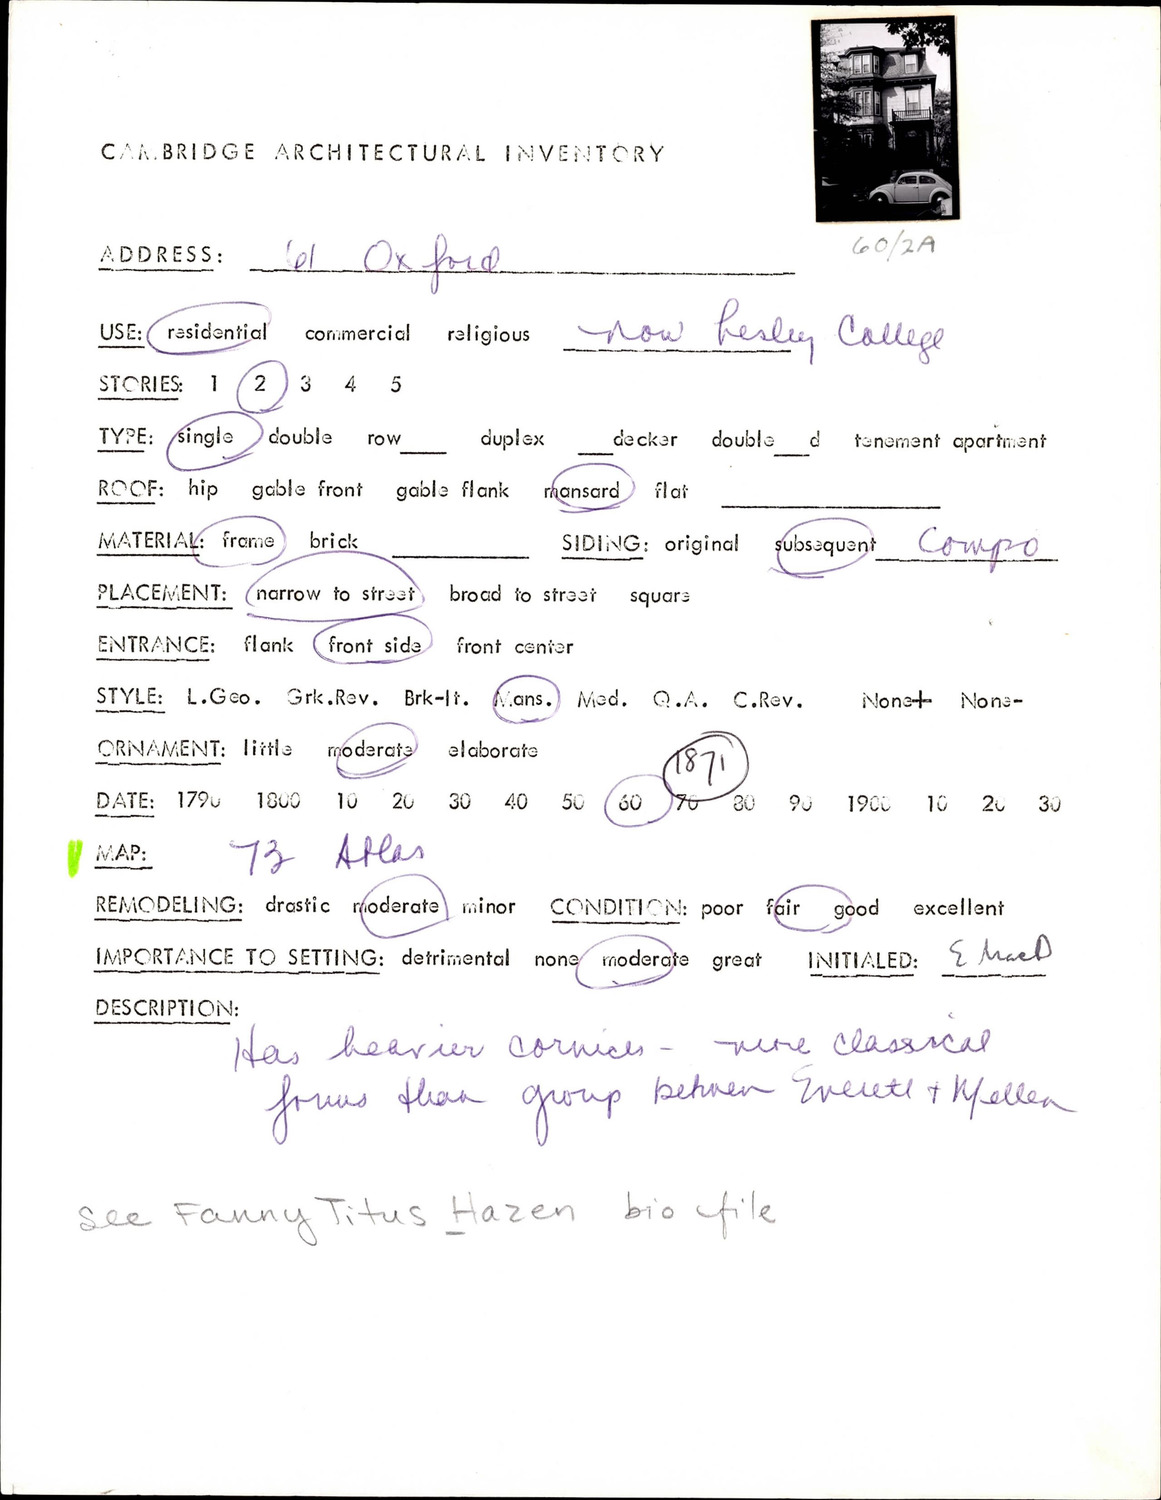 CAMBRIDGE ARCHITECTURAL INVENTORY
60/2A
ADDRESS: 61 Oxford
USE: residential commercial religious now Lesley College
STORIES: 1 2 3 4 5
TYPE: single double row___ duplex ___decker double___d tenement apartment
ROOF: hip gable front gable flank mansard flat
MATERIAL: frame brick ______ SIDING: original subsequent Compo
PLACEMENT: narrow to street broad to street square
ENTRANCE: flank front side front center
STYLE: L.Geo. Grk.Rev. Brk-It. Mans. Med. Q.A. C.Rev. None+ None-
ORNAMENT: little moderate elaborate
1871
DATE: 1790 1800 10 20 30 40 50 60 70 80 90 1900 10 20 30
MAP: 73 Atlas
REMODELING: drastic moderate minor CONDITION: poor fair good excellent
IMPORTANCE TO SETTING: detrimental none moderate great INITIALED: E MacD
DESCRIPTION:
Has heavier cornices - more classical
forms than group between Everett + Mellen
see Fanny Titus Hazen bio file